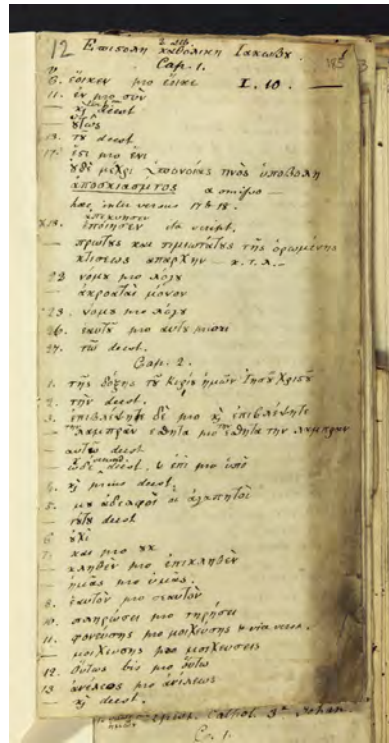 12 Επιστολη καθολικη Ιακωβου.
Cap. 1.
6. ἔοικεν pro ἔοικε I. 10. —
11. ἐν pro σὺν
— κỳ deest
— οὕτως
13. τȣ deest
17. ἔςι pro ἔνι
ȣδὲ μέχρι ὑπονοίας τινὸς ὑποβολὴ
ἀποσκιασματος a
haec inter versus 17 & 18.
18. ἐποίησεν
— πρώτȣς και τιμιωτάτȣς τῆς ὁρωμένης
κτίσεως ἀπαρχὴν — κ.τ.λ.
22 νόμȣ pro λόγȣ
— ἀκροαταὶ μόνον
23. νόμȣ pro λόγȣ
26. ἑαυτȣ̃ pro αυτȣ
27. τῷ deest.
Cap. 2.
1. τῆς δόξης τȣ̃ Κυρίȣ ἡμῶν Ἰησȣ̃ Χριςȣ̃
2. τὴν deest.
3. ἐπιβλέψητε δὲ pro κỳ ἐπιβλέψητε
— τὴν λαμπρὰν ἐσθῆτα pro τὴν ἐσθῆτα την λαμπραν
— αυτῷ deest
— ὧδε deest. & ἐπι pro ὑπὸ
4. κỳ deest.
5. μȣ ἀδελφοὶ οἱ ἀγαπητοὶ
— τȣ́τȣ deest
6 ȣ̓χὶ
7. και pro ȣκ
— κληθὲν pro ἐπικληθὲν
— ἡμᾶς pro ὑμᾶς.
8. ἑαυτὸν pro σεαυτὸν
10. πληρώσει pro τηρήσει
11. φονευσης pro μοιχευσης &
— μοιχευσης pro μοιχευσεις
12. οὕτως bis pro οὕτω
13 ἀνέλεος pro ἀνίλεως
— κỳ deest.
Cathol. 3ª Johan.
Co. 1.